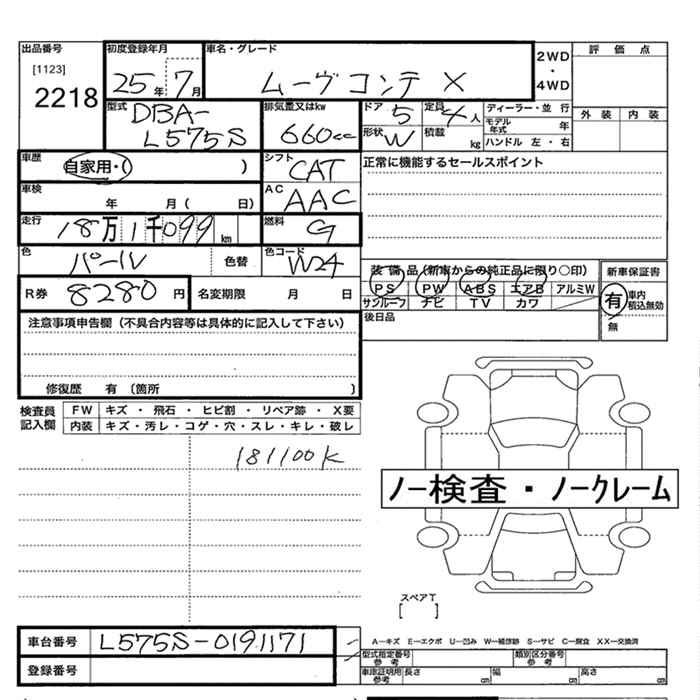 出品番号 初度登録年月 車名・グレード 評価点
[1123] 2218 25年 7月 ムーヴコンテ X 2WD・4WD
型式 DBA-L575S 排気量又はkw 660cc ドア 5 定員 4人 ディーラー・並行 外装 内装
形状 W 積載 kg モデル年式 年
ハンドル 左・右
車歴 自家用・( ) シフト CAT 正常に機能するセールスポイント
車検 年 月( 日) AC AAC
走行 18万1千099km 燃料 G
色 パール 色替 色コード W24 装備品(新車からの純正品に限り○印) 新車保証書
R券 8280円 名変期限 月 日 PS PW ABS エアB アルミW 有 車内積込無効
サンルーフ ナビ TV カワ 無
注意事項申告欄(不具合内容等は具体的に記入して下さい) 後日品
修復歴 有 〔箇所 〕
検査員記入欄 FW キズ・飛石・ヒビ割・リペア跡・X要
内装 キズ・汚レ・コゲ・穴・スレ・キレ・破レ
181100K
ノー検査・ノークレーム
スペアT
[ ]
車台番号 L575S-0191171 A−キズ E−エクボ U−凹み W−補修跡 S−サビ C−腐食 XX−交換済
登録番号 型式指定番号 参考 類別区分番号 参考
車庫証明用 参考 長さ cm 幅 cm 高さ cm